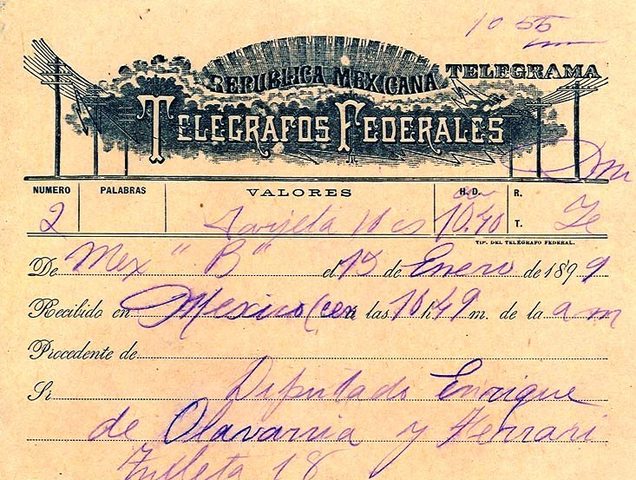 10 55
REPUBLICA MEXICANA TELEGRAMA
TELEGRAFOS FEDERALES
NUMERO PALABRAS VALORES H.D. R.
2 Tarjeta 10 cs 10.40 T.
TIP. DEL TELÉGRAFO FEDERAL.
De Mex "B" el 15 de Enero de 1899
Recibido en Mexico (cen a las 10 h 49 m. de la a m
Procedente de
Sr Diputado Enrique
de Olavarria y Ferrari
18